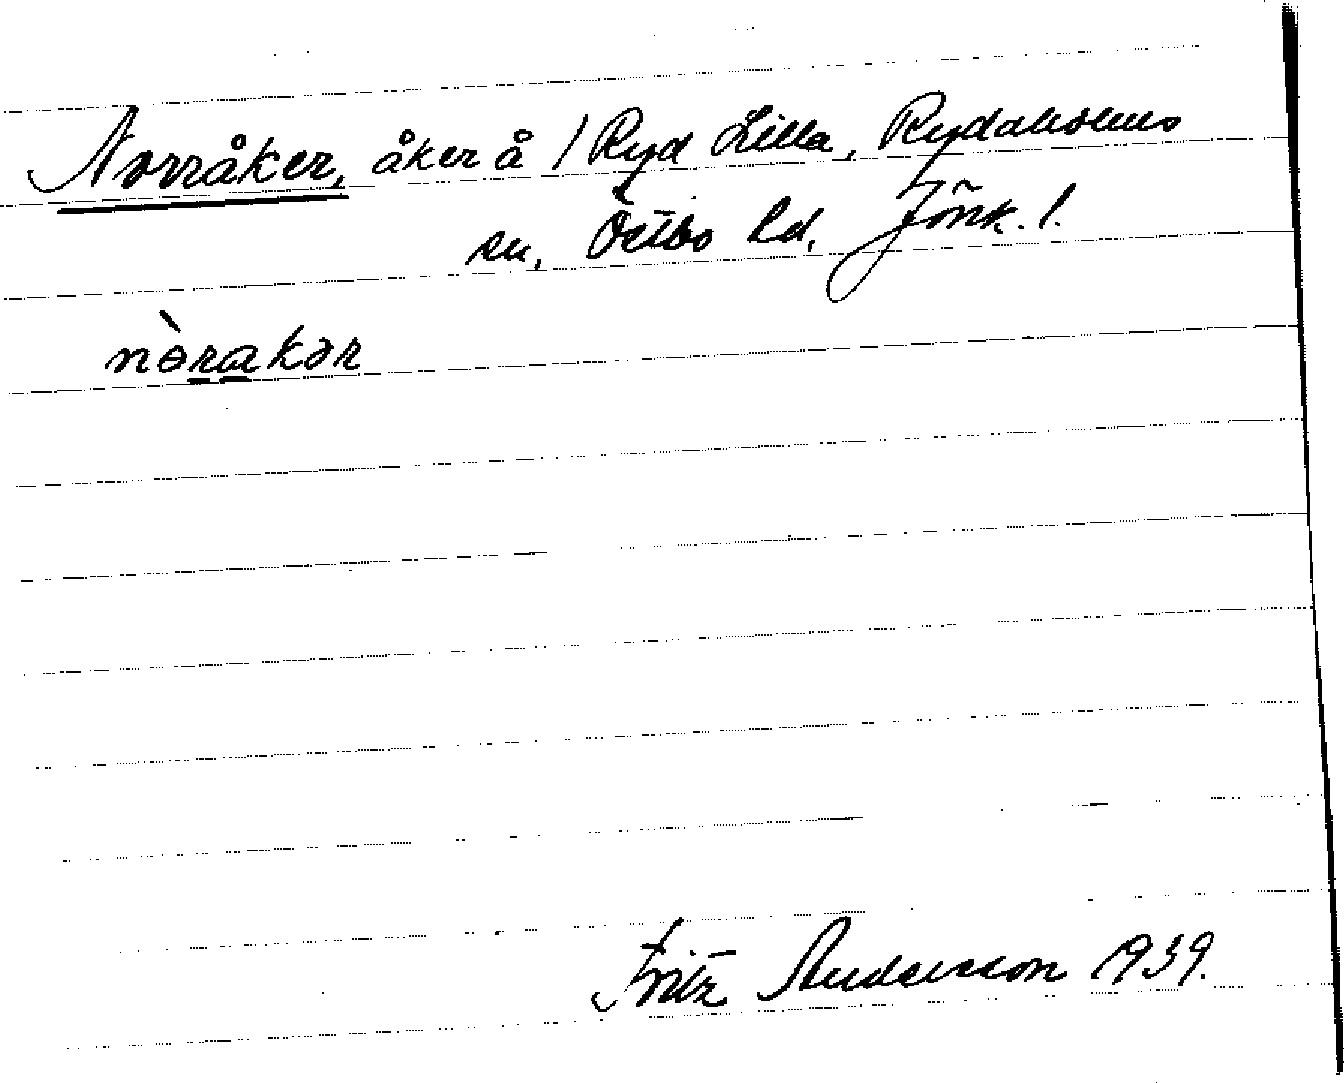 Norråker, åker å / Ryd Lilla, Rydaholms
sn, Östbo hd, Jönk. l.
nə̀rakər
Fritz Andersson 1939.